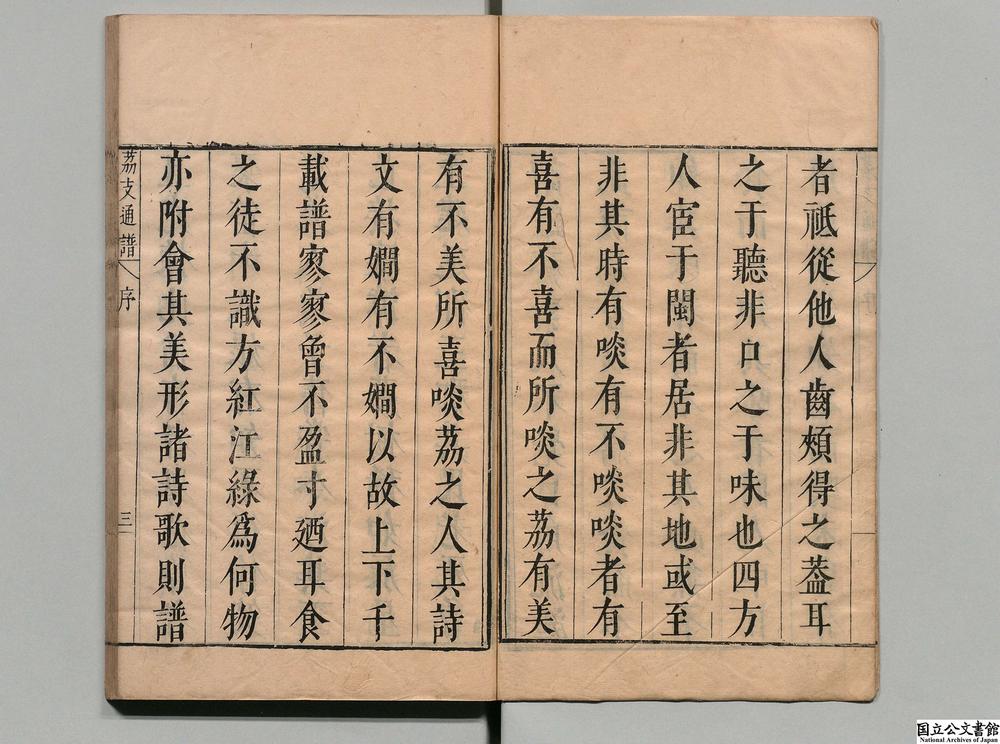 者祗從他人齒頰得之葢耳
之于聽非口之于味也四方
人宦于閩者居非其地或至
非其時有啖有不啖啖者有
喜有不喜而所啖之荔有美
有不美所喜啖荔之人其詩
文有嫺有不嫺以故上下千
載譜寥寥曾不盈寸廼耳食
之徒不識方紅江綠爲何物
亦附會其美形諸詩歌則譜
荔支通譜 序 三
国立公文書館
National Archives of Japan